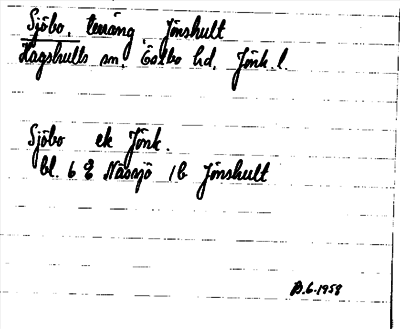 Sjöbo, terräng Jönshult
Kagshults sn. Östbo hd. Jönk. l.
Sjöbo ek Jönk.
bl. 6 E Nässjö 1b Jönshult
B.6.1958